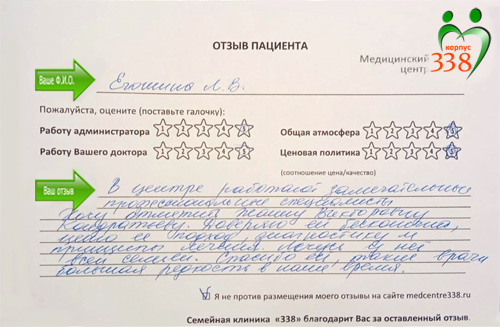 ОТЗЫВ ПАЦИЕНТА
корпус
338
Медицинский
центр
Ваше Ф.И.О.
Егошина Л.В.
Пожалуйста, оцените (поставьте галочку):
Работу администратора 1 2 3 4 5
Общая атмосфера 1 2 3 4 5
Работу Вашего доктора 1 2 3 4 5
Ценовая политика 1 2 3 4 5
(соотношение цена/качество)
Ваш отзыв
В центре работают замечательные
профессиональные специалисты
Хочу отметить Викторовну
Кондратьеву. Доверяю ей бесконечно,
ценю ее подход диагностики и
принципы лечения. Лечусь у неё
всей семьей. Спасибо ей, такие врачи
большая редкость в наше время.
Я не против размещения моего отзыва на сайте medcentre338.ru
Семейная клиника «338» благодарит Вас за оставленный отзыв.